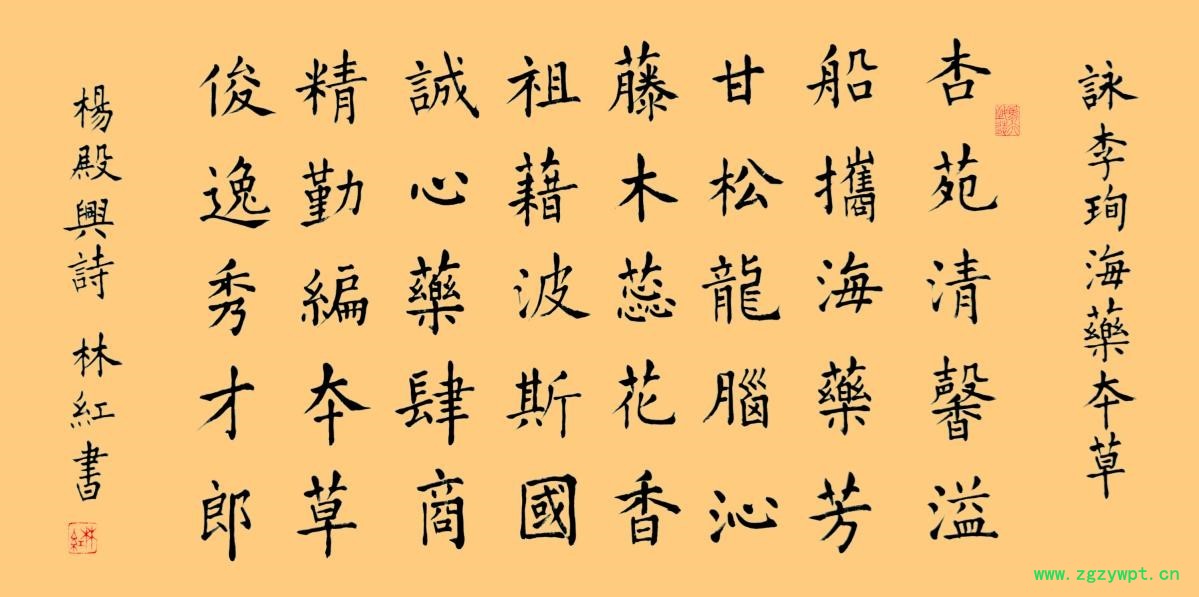 詠李珣海藥本草
杏苑清馨溢
船攜海藥芳
甘松龍腦沁
藤木蕊花香
祖藉波斯國
誠心藥肆商
精勤編本草
俊逸秀才郎
楊殿興詩 林紅書
林紅
www.zgzywpt.cn